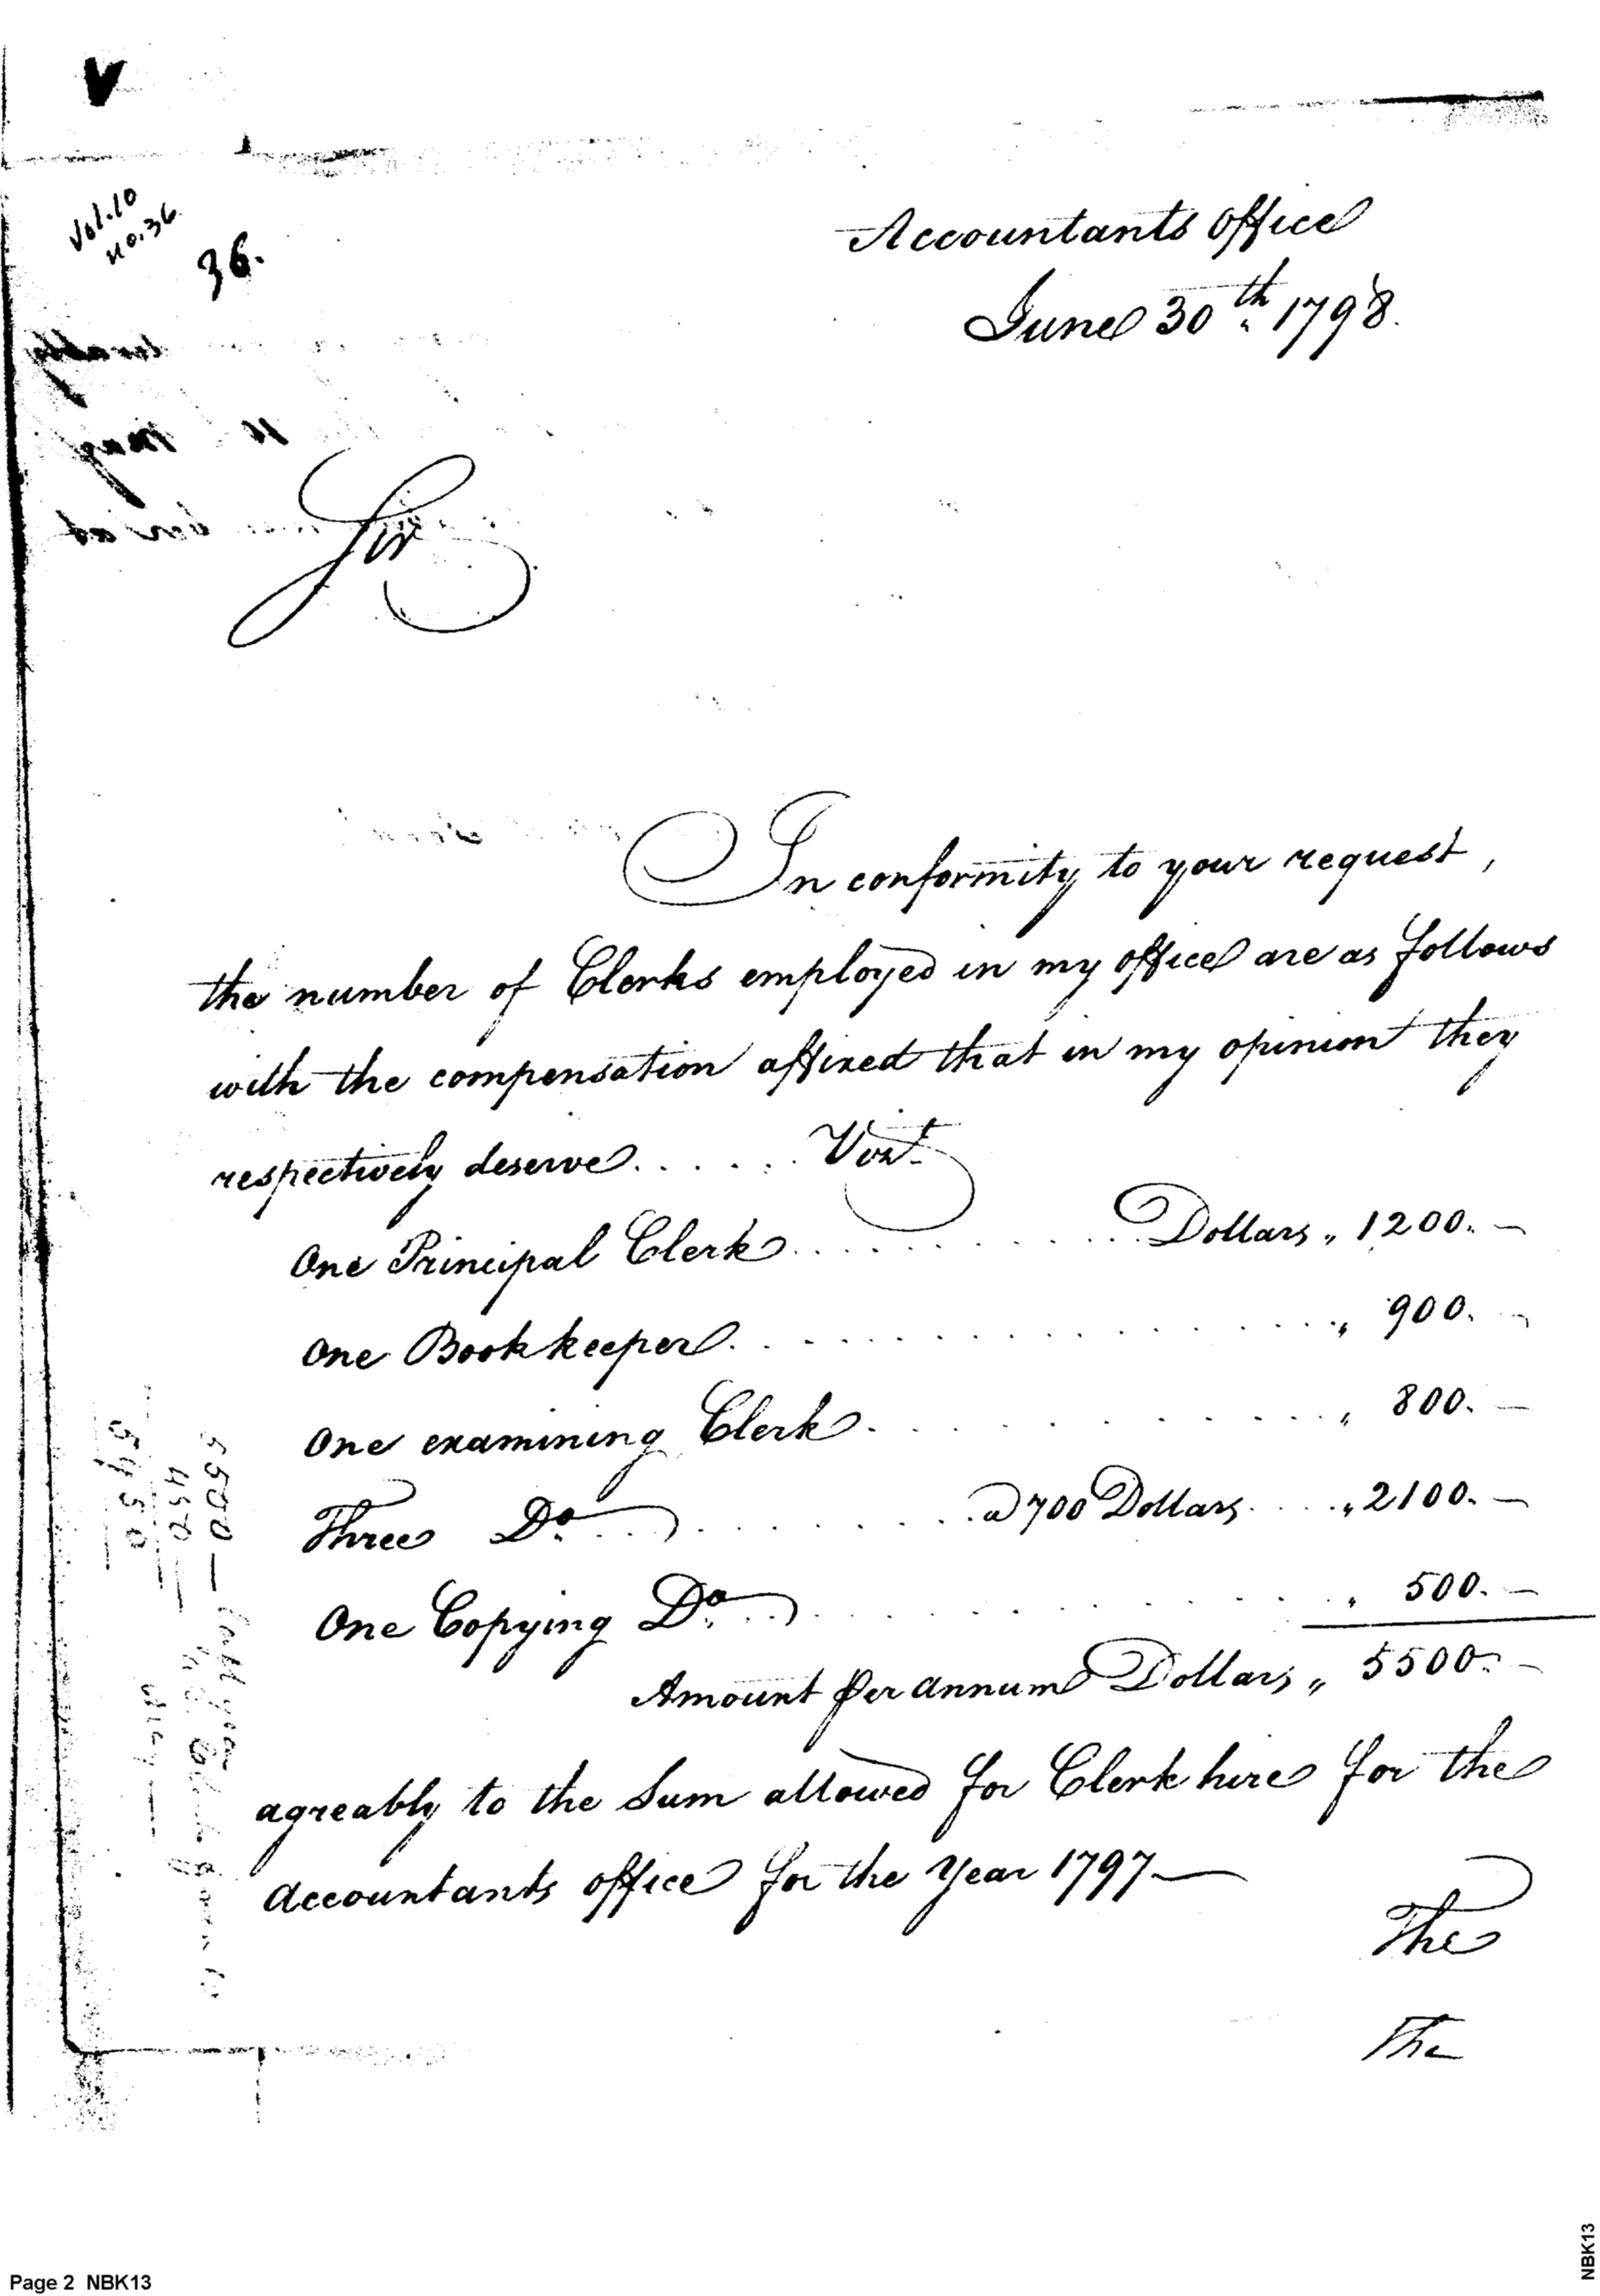 V
Vol. 10
no. 36
36.
Accountants Office
June 30th 1798.
Sir
In conformity to your request,
the number of Clerks employed in my office are as follows
with the compensation affixed that in my opinion they
respectively deserve. . . . . . Vizt.
One Principal Clerk . . . . . . . . . . Dollars „ 1200. —
One Bookkeeper. . . . . . . . . . . . . . . „ 900. —
One examining Clerk . . . . . . . . . . . „ 800. —
Three Do. . . . . . . . . . . a 700 Dollars . . . . „ 2100. —
One Copying Do. . . . . . . . . . . . . . „ 500. —
Amount per annum Dollars „ 5500. —
agreably to the Sum allowed for Clerk hire for the
accountants office for the Year 1797 —
The
The
5500 —
450 —
5950
Page 2 NBK13
NBK13